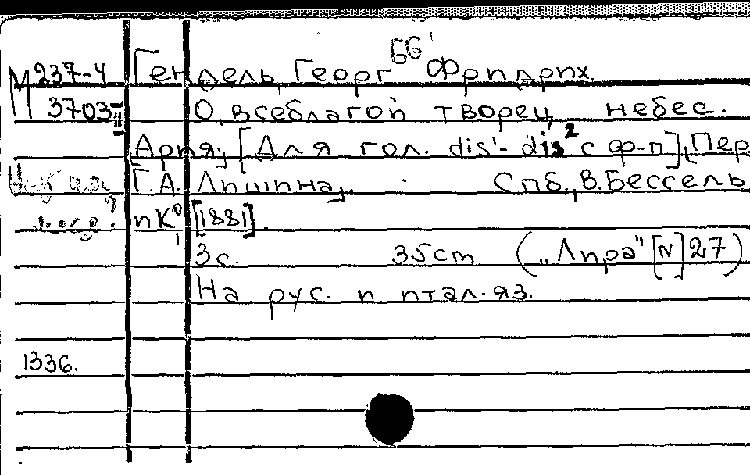 ББ'
М 237-4 Гендель, Георг Фридрих.
3703-II О, всеблагой творец небес.
Ария; [Для гол. dis'- dis² с ф-п], Пер
Г.А. Лишина,. Спб., В. Бессель
и К⁰, [1881].
3 с. 35 cm ("Лира" [N] 27)
На рус. и итал. яз.
1336.